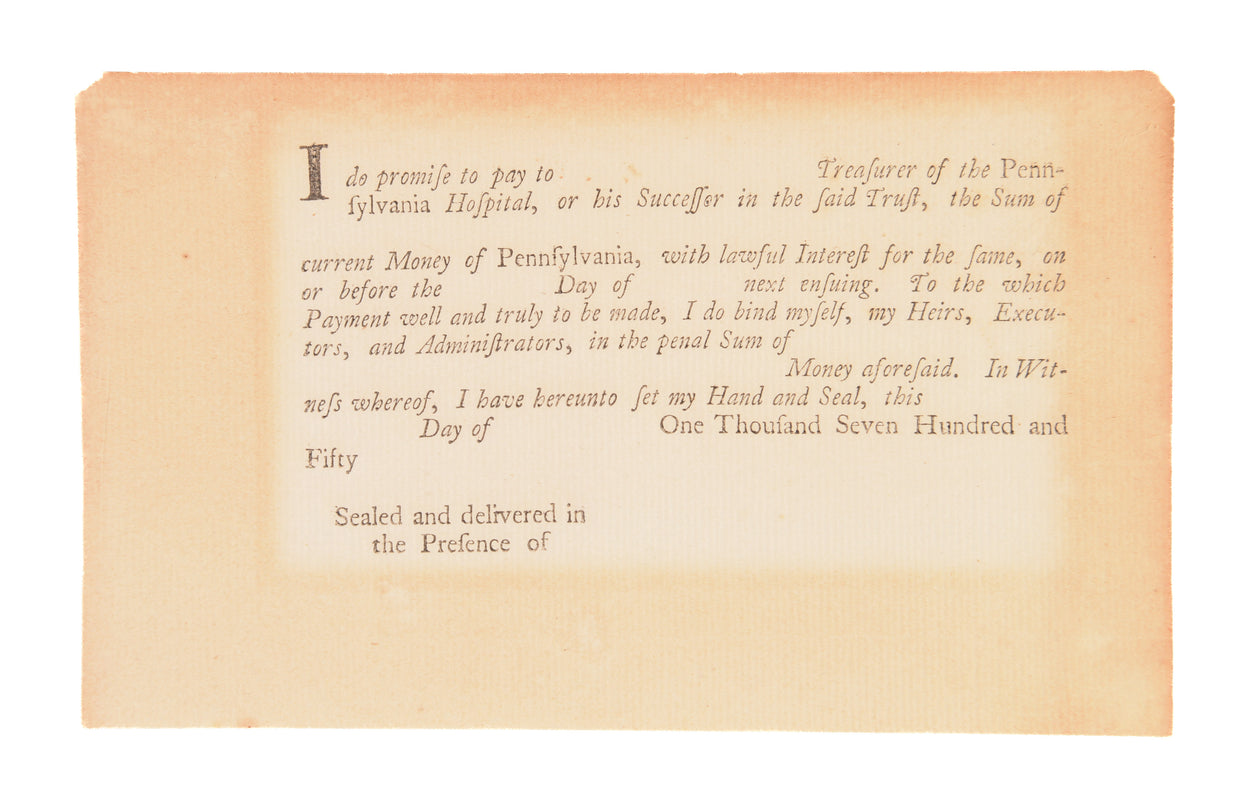 I do promiſe to pay to Treaſurer of the Penn-
ſylvania Hoſpital, or his Succeſſor in the ſaid Truſt, the Sum of
current Money of Pennſylvania, with lawful Intereſt for the ſame, on
or before the Day of next enſuing. To the which
Payment well and truly to be made, I do bind myſelf, my Heirs, Execu-
tors, and Adminiſtrators, in the penal Sum of
Money aforeſaid. In Wit-
neſs whereof, I have hereunto ſet my Hand and Seal, this
Day of One Thouſand Seven Hundred and
Fifty
Sealed and delivered in
the Preſence of